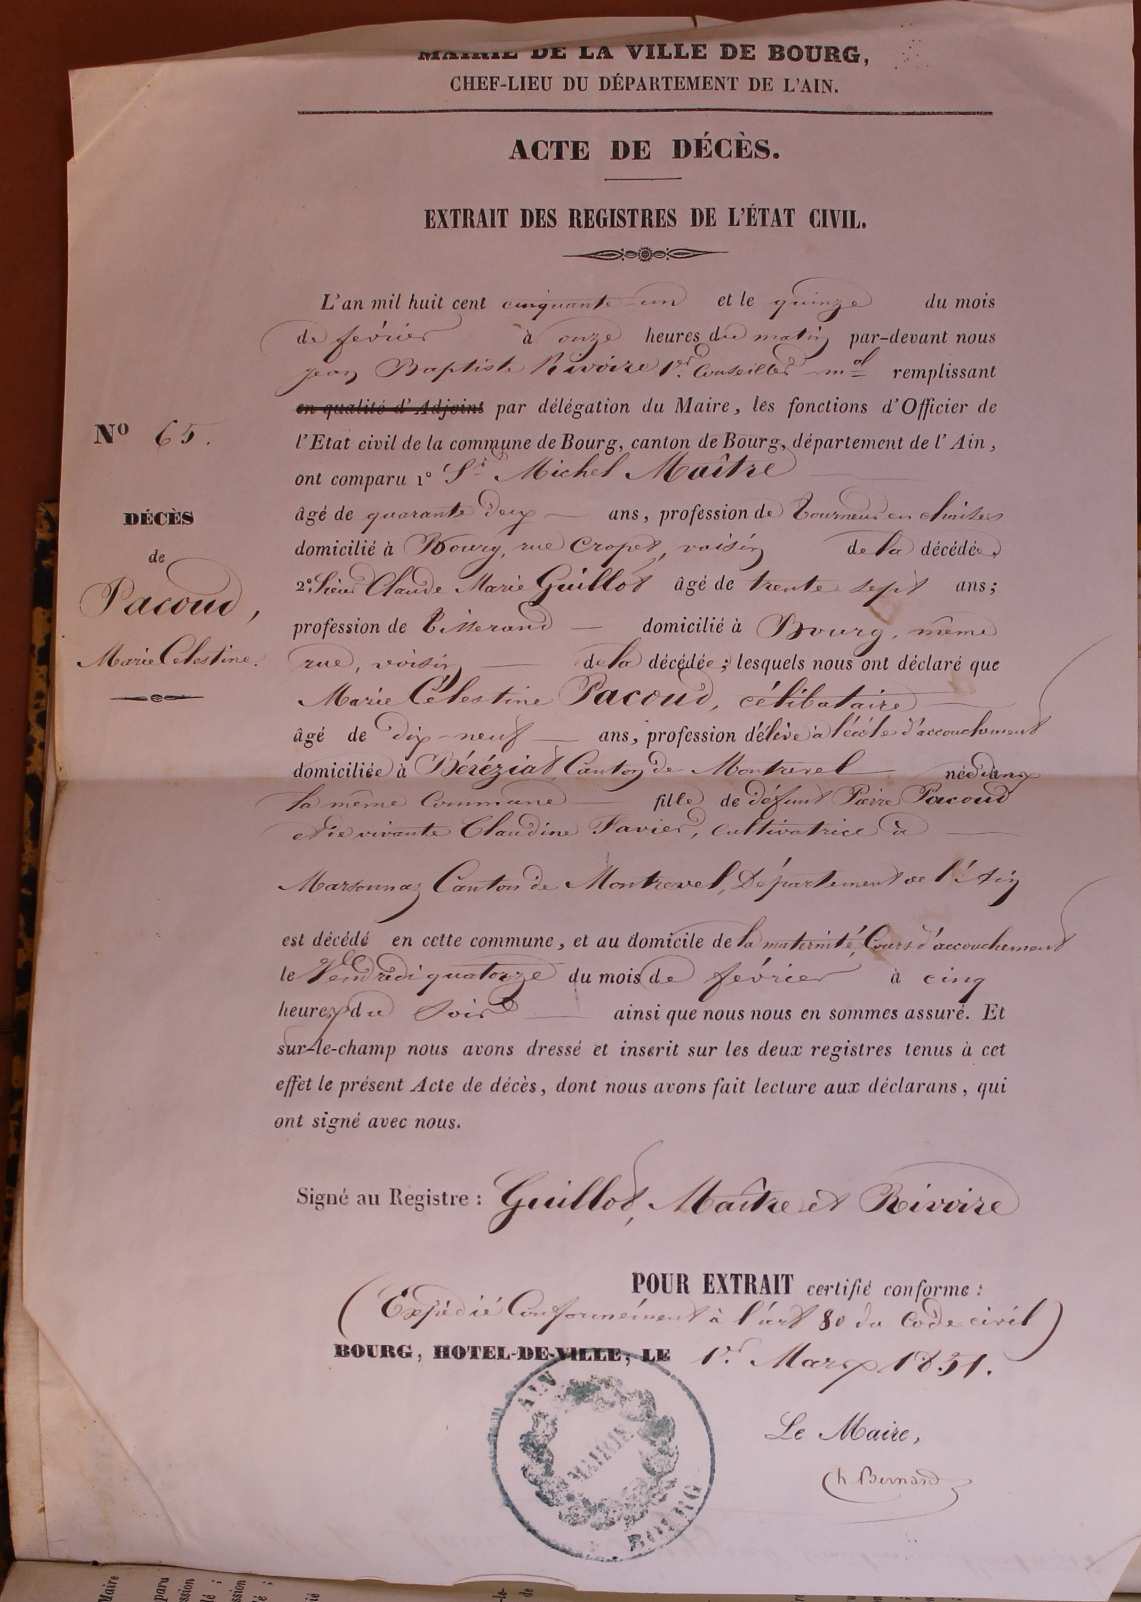 MAIRIE DE LA VILLE DE BOURG,
CHEF-LIEU DU DÉPARTEMENT DE L'AIN.
ACTE DE DÉCÈS.
EXTRAIT DES REGISTRES DE L'ÉTAT CIVIL.
L'an mil huit cent cinquante-un et le quinze du mois
de février à onze heures du matin par-devant nous
Jean Baptiste Rivoire 1er Conseiller mal remplissant
en qualité d'Adjoint par délégation du Maire, les fonctions d'Officier de
l'Etat civil de la commune de Bourg, canton de Bourg, département de l'Ain,
ont comparu 1° Sr Michel Maître
âgé de quarante deux ans, profession de Tourneur en chaises
domicilié à Bourg, rue Cropet, voisin de la décédée
2° Sieur Claude Marie Guillot âgé de trente sept ans;
profession de Tisserand domicilié à Bourg, même
rue, voisin de la décédée; lesquels nous ont déclaré que
Marie Célestine Pacoud, célibataire
âgé de dix-neuf ans, profession d'élève à l'école d'accouchement
domiciliée à Béréziat Canton de Montrevel née dans
la même Commune fille de défunt Pierre Pacoud
et de vivante Claudine Favier, cultivatrice à
Marsonnaz Canton de Montrevel, Département de l'Ain
est décédé en cette commune, et au domicile de la maternité, Cours d'accouchement
le Vendredi quatorze du mois de février à cinq
heures du soir ainsi que nous nous en sommes assuré. Et
sur-le-champ nous avons dressé et inscrit sur les deux registres tenus à cet
effet le présent Acte de décès, dont nous avons fait lecture aux déclarans, qui
ont signé avec nous.
N° 65.
DÉCÈS
de
Pacoud,
Marie Célestine.
Signé au Registre : Guillot, Maître et Rivoire
POUR EXTRAIT certifié conforme :
(Expédié Conformément à l'art 80 du Code civil)
BOURG, HOTEL-DE-VILLE, LE 1er Mars 1851.
Le Maire,
Ch Bernard
AIN
MAIRIE
BOURG